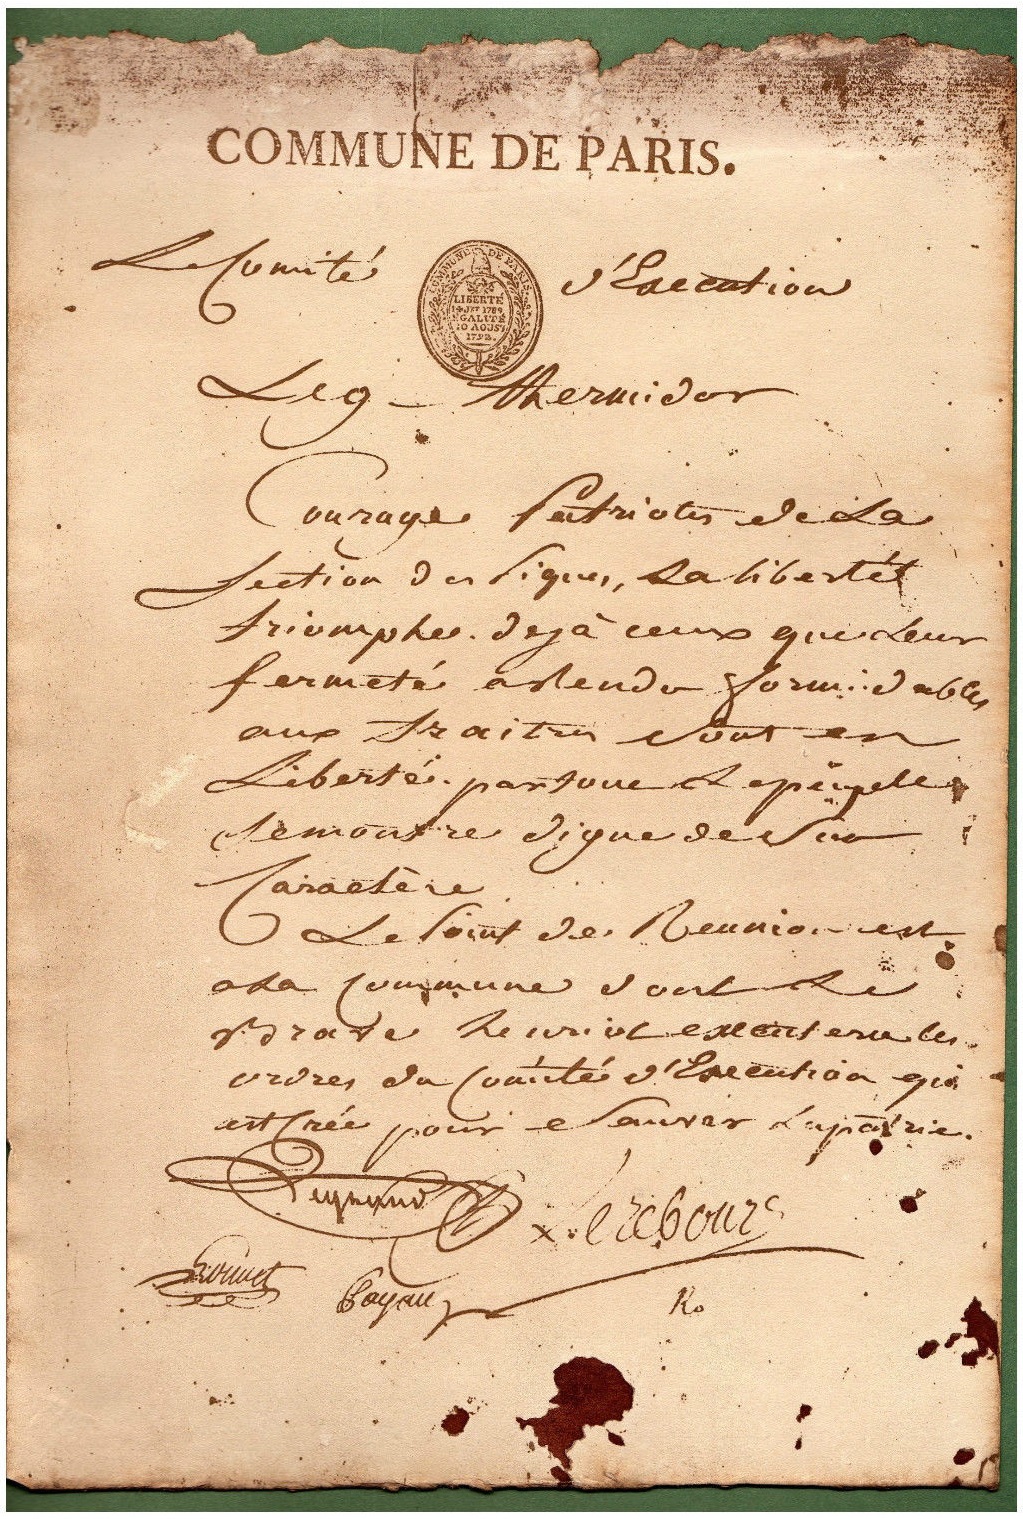 COMMUNE DE PARIS.
Le Comité d'Execution
COMMUNE DE PARIS.
LIBERTÉ
14 JET 1789.
EGALITÉ
10 AOUST
1792.
Le 9 - thermidor
Courage Patriotes de La
Section des Piques, La liberté
triomphe. deja ceux que Leur
fermeté a Rendu formidables
aux traitres Sont en
Liberté. partout Le peuple
Se montre digne de Son
Caractère
Le Point de Reunion est
a La Commune dont Le
Brave henriot executera les
ordres du Comité d'Execution qui
est Crée pour Sauver La patrie.
Legrand Lerebours
Payan Ro